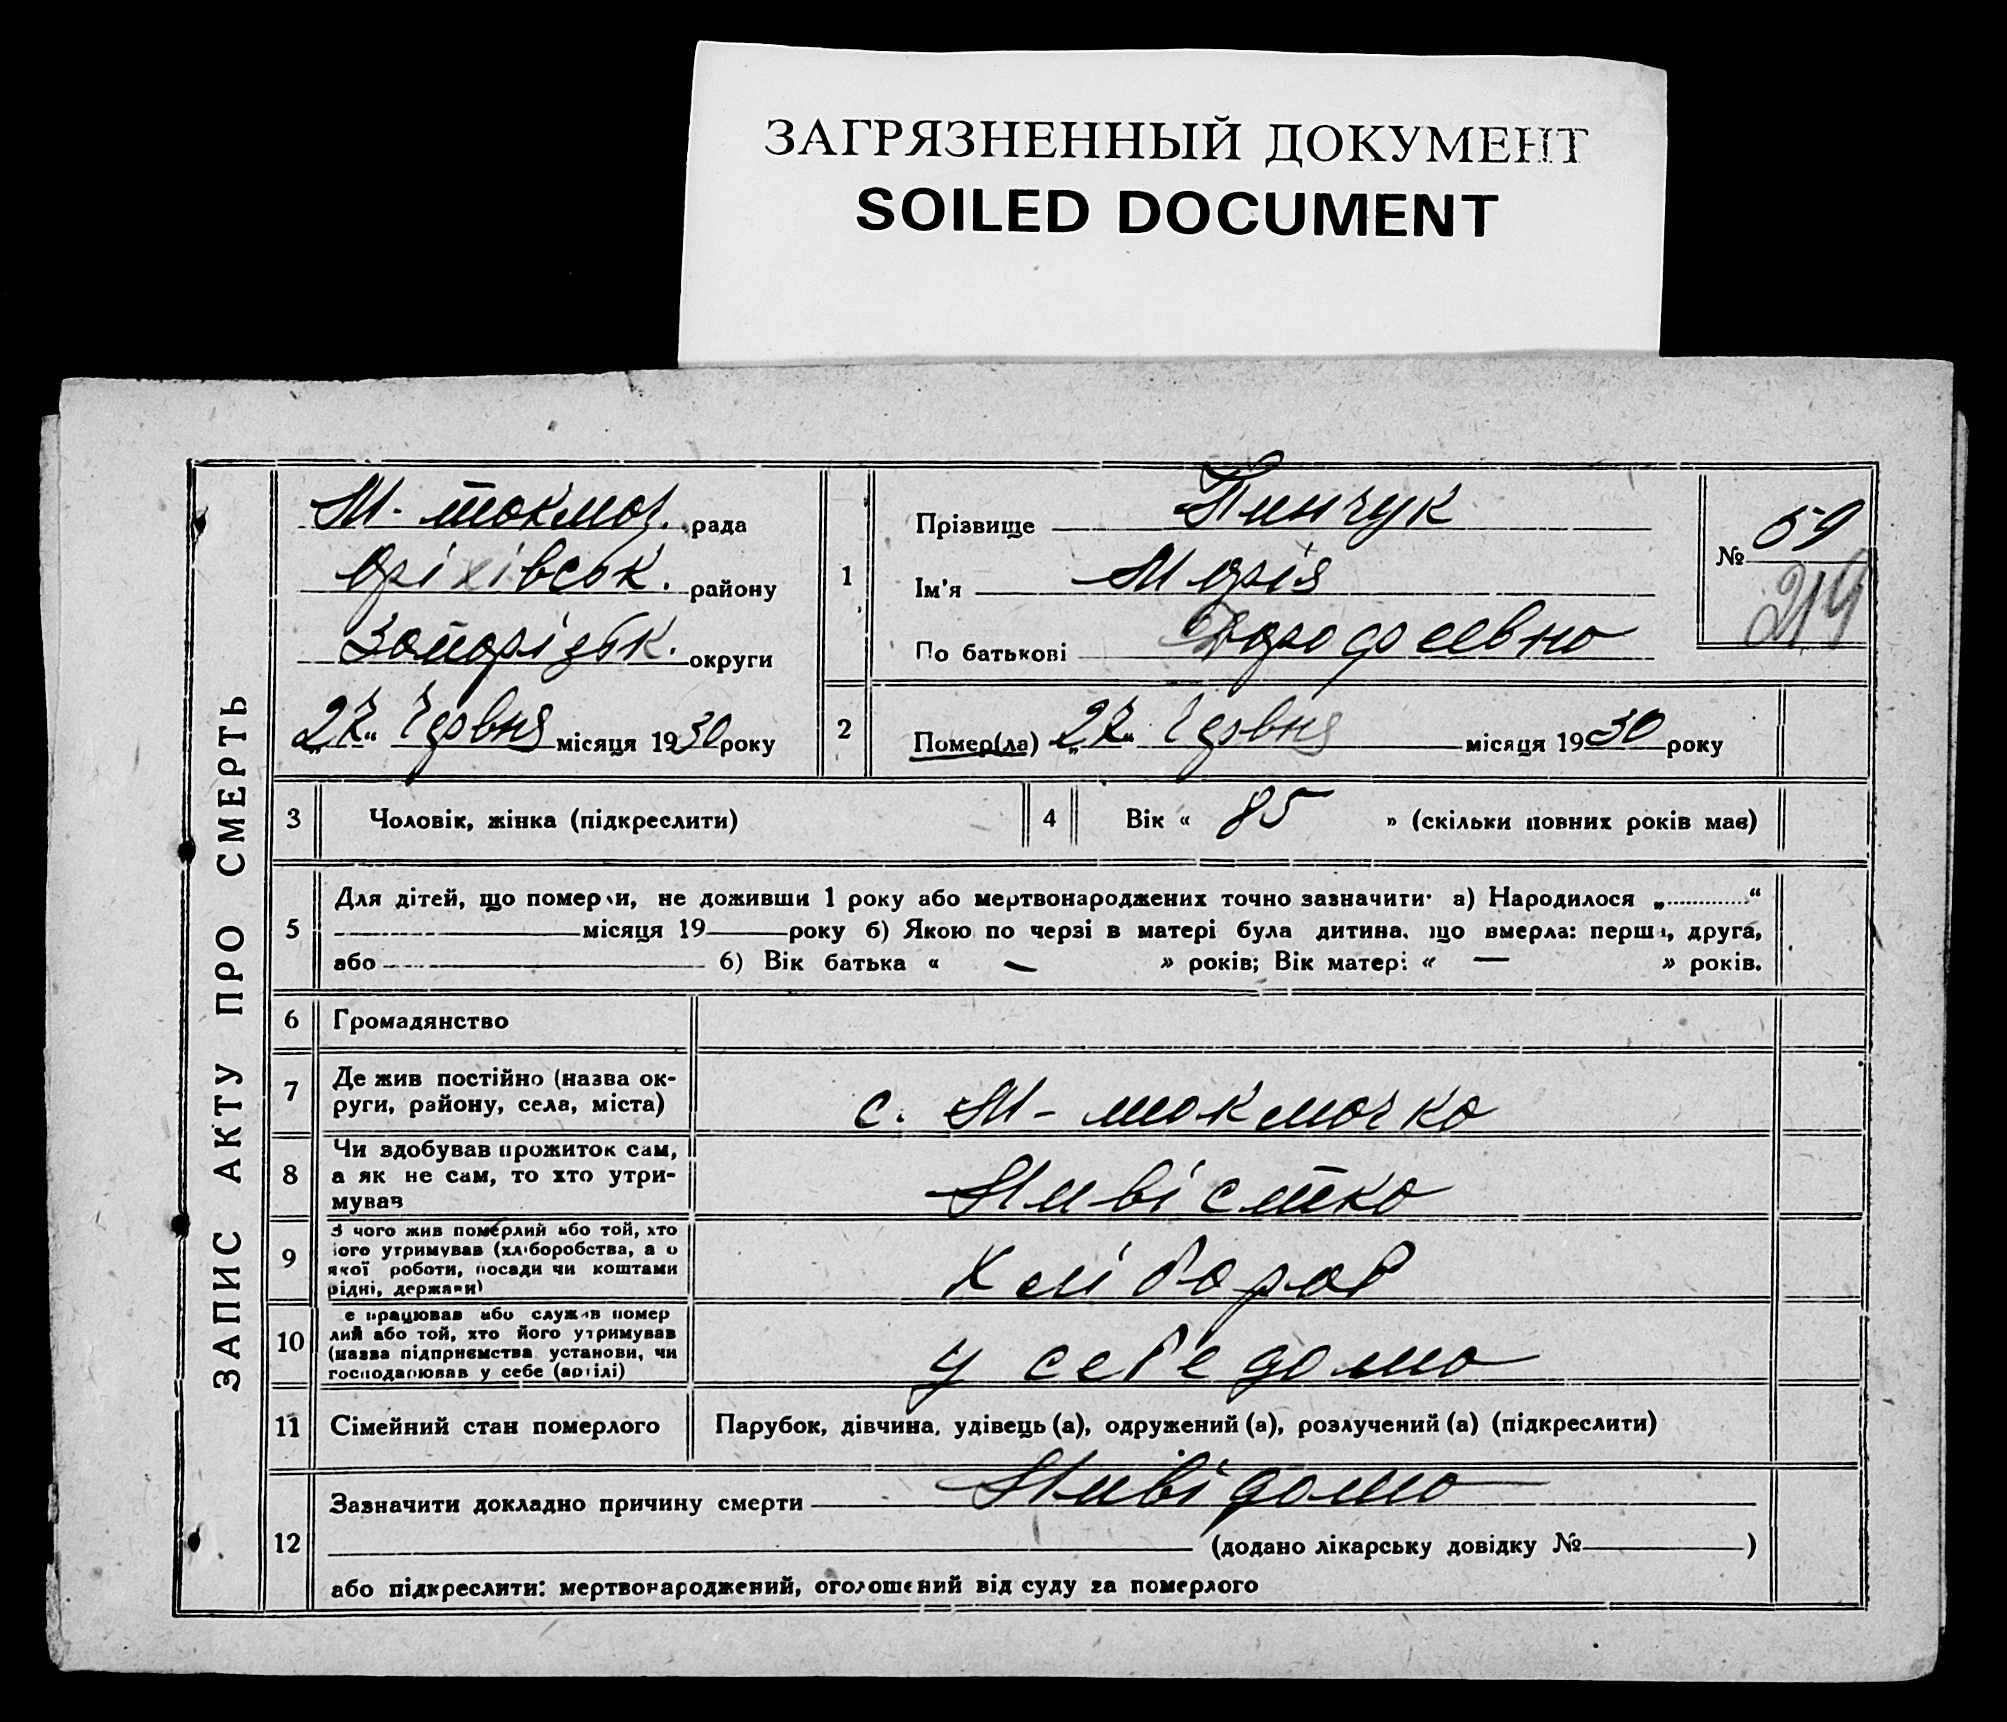 ЗАГРЯЗНЕННЫЙ ДОКУМЕНТ
SOILED DOCUMENT
ЗАПИС АКТУ ПРО СМЕРТЬ
М-токмоч. рада
Оріхівськ. району
Запорізьк. округи
„27“ Червня місяця 1930 року
1
Прізвище Пинчук
Ім'я Марія
По батькові Дорофеевна
№ 59
214
2
Помер(ла) „27“ Червня місяця 1930 року
3 Чоловік, жінка (підкреслити)
4 Вік « 85 » (скільки повних років має)
5
Для дітей, що померли, не доживши 1 року або мертвонароджених точно зазначити: а) Народилося „ “
місяця 19 року б) Якою по черзі в матері була дитина, що вмерла: перша, друга,
або 6) Вік батька « — » років; Вік матері « — » років.
6 Громадянство
7
Де жив постійно (назва ок-
руги, району, села, міста)
с. М-токмачка
8
Чи здобував прожиток сам,
а як не сам, то хто утри-
мував
Нивістка
9
З чого жив померлий або той, хто
його утримував (хліборобства, а о
якої роботи, посади чи коштами
рідні, держави)
Хлібороб
10
е працював або служив помер
лий або той, хто його утримував
(назва підприємства установи, чи
господарював у себе (артілі)
у себе дома
11 Сімейний стан померлого
Парубок, дівчина, удівець (а), одружений (а), розлучений (а) (підкреслити)
12
Зазначити докладно причину смерти Нивідомо
(додано лікарську довідку № )
або підкреслити: мертвонароджений, оголошений від суду за померлого